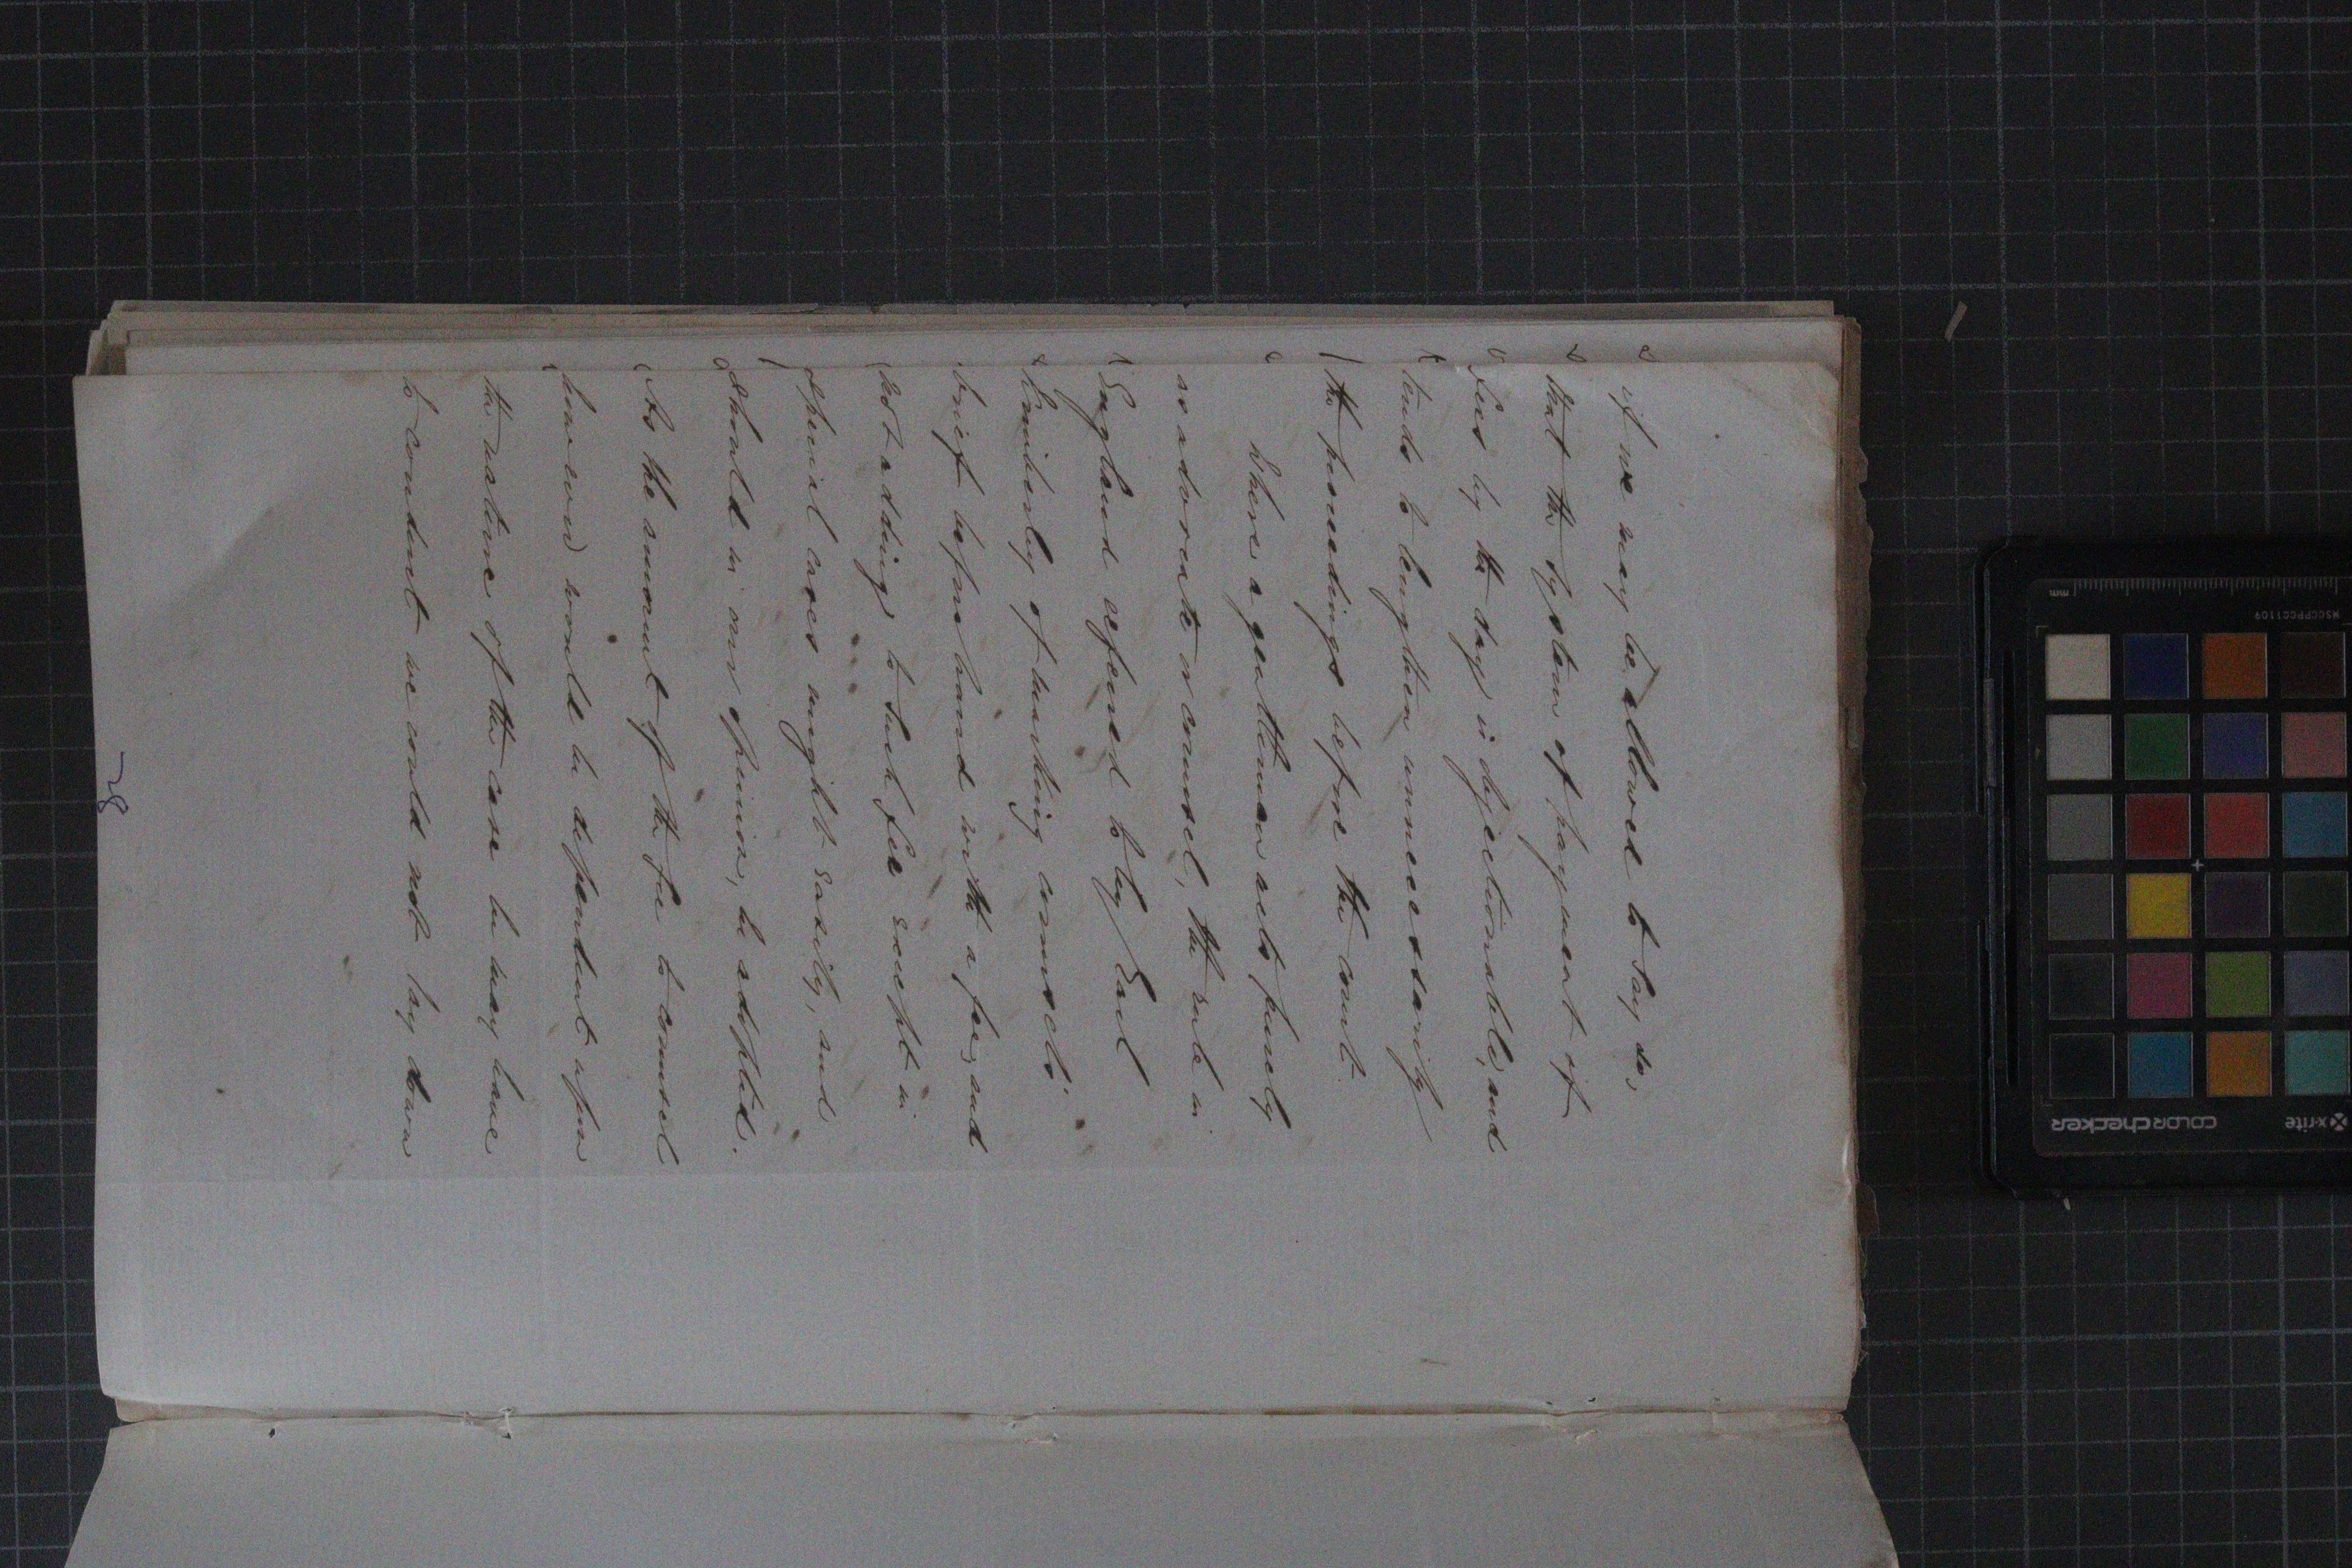 if we may be allowed to say so,
that the system of payment of
fees by the day is objectionable, and
tends to lengthen unnecessarily
the proceedings before the court.
Where a gentleman acts purely
as advocate or counsel, the rule in
England referred to by Earl
Kimberley of marking counsels'
brief beforehand with a fee, and
not adding to such fee except in
special cases might easily, and
should in our opinion, be adopted.
As the amount of the fee to counsel
however would be dependent upon
the nature of the case he may have
to conduct we could not lay down
x-rite
colorchecker
MSCCPPCC1109
mm